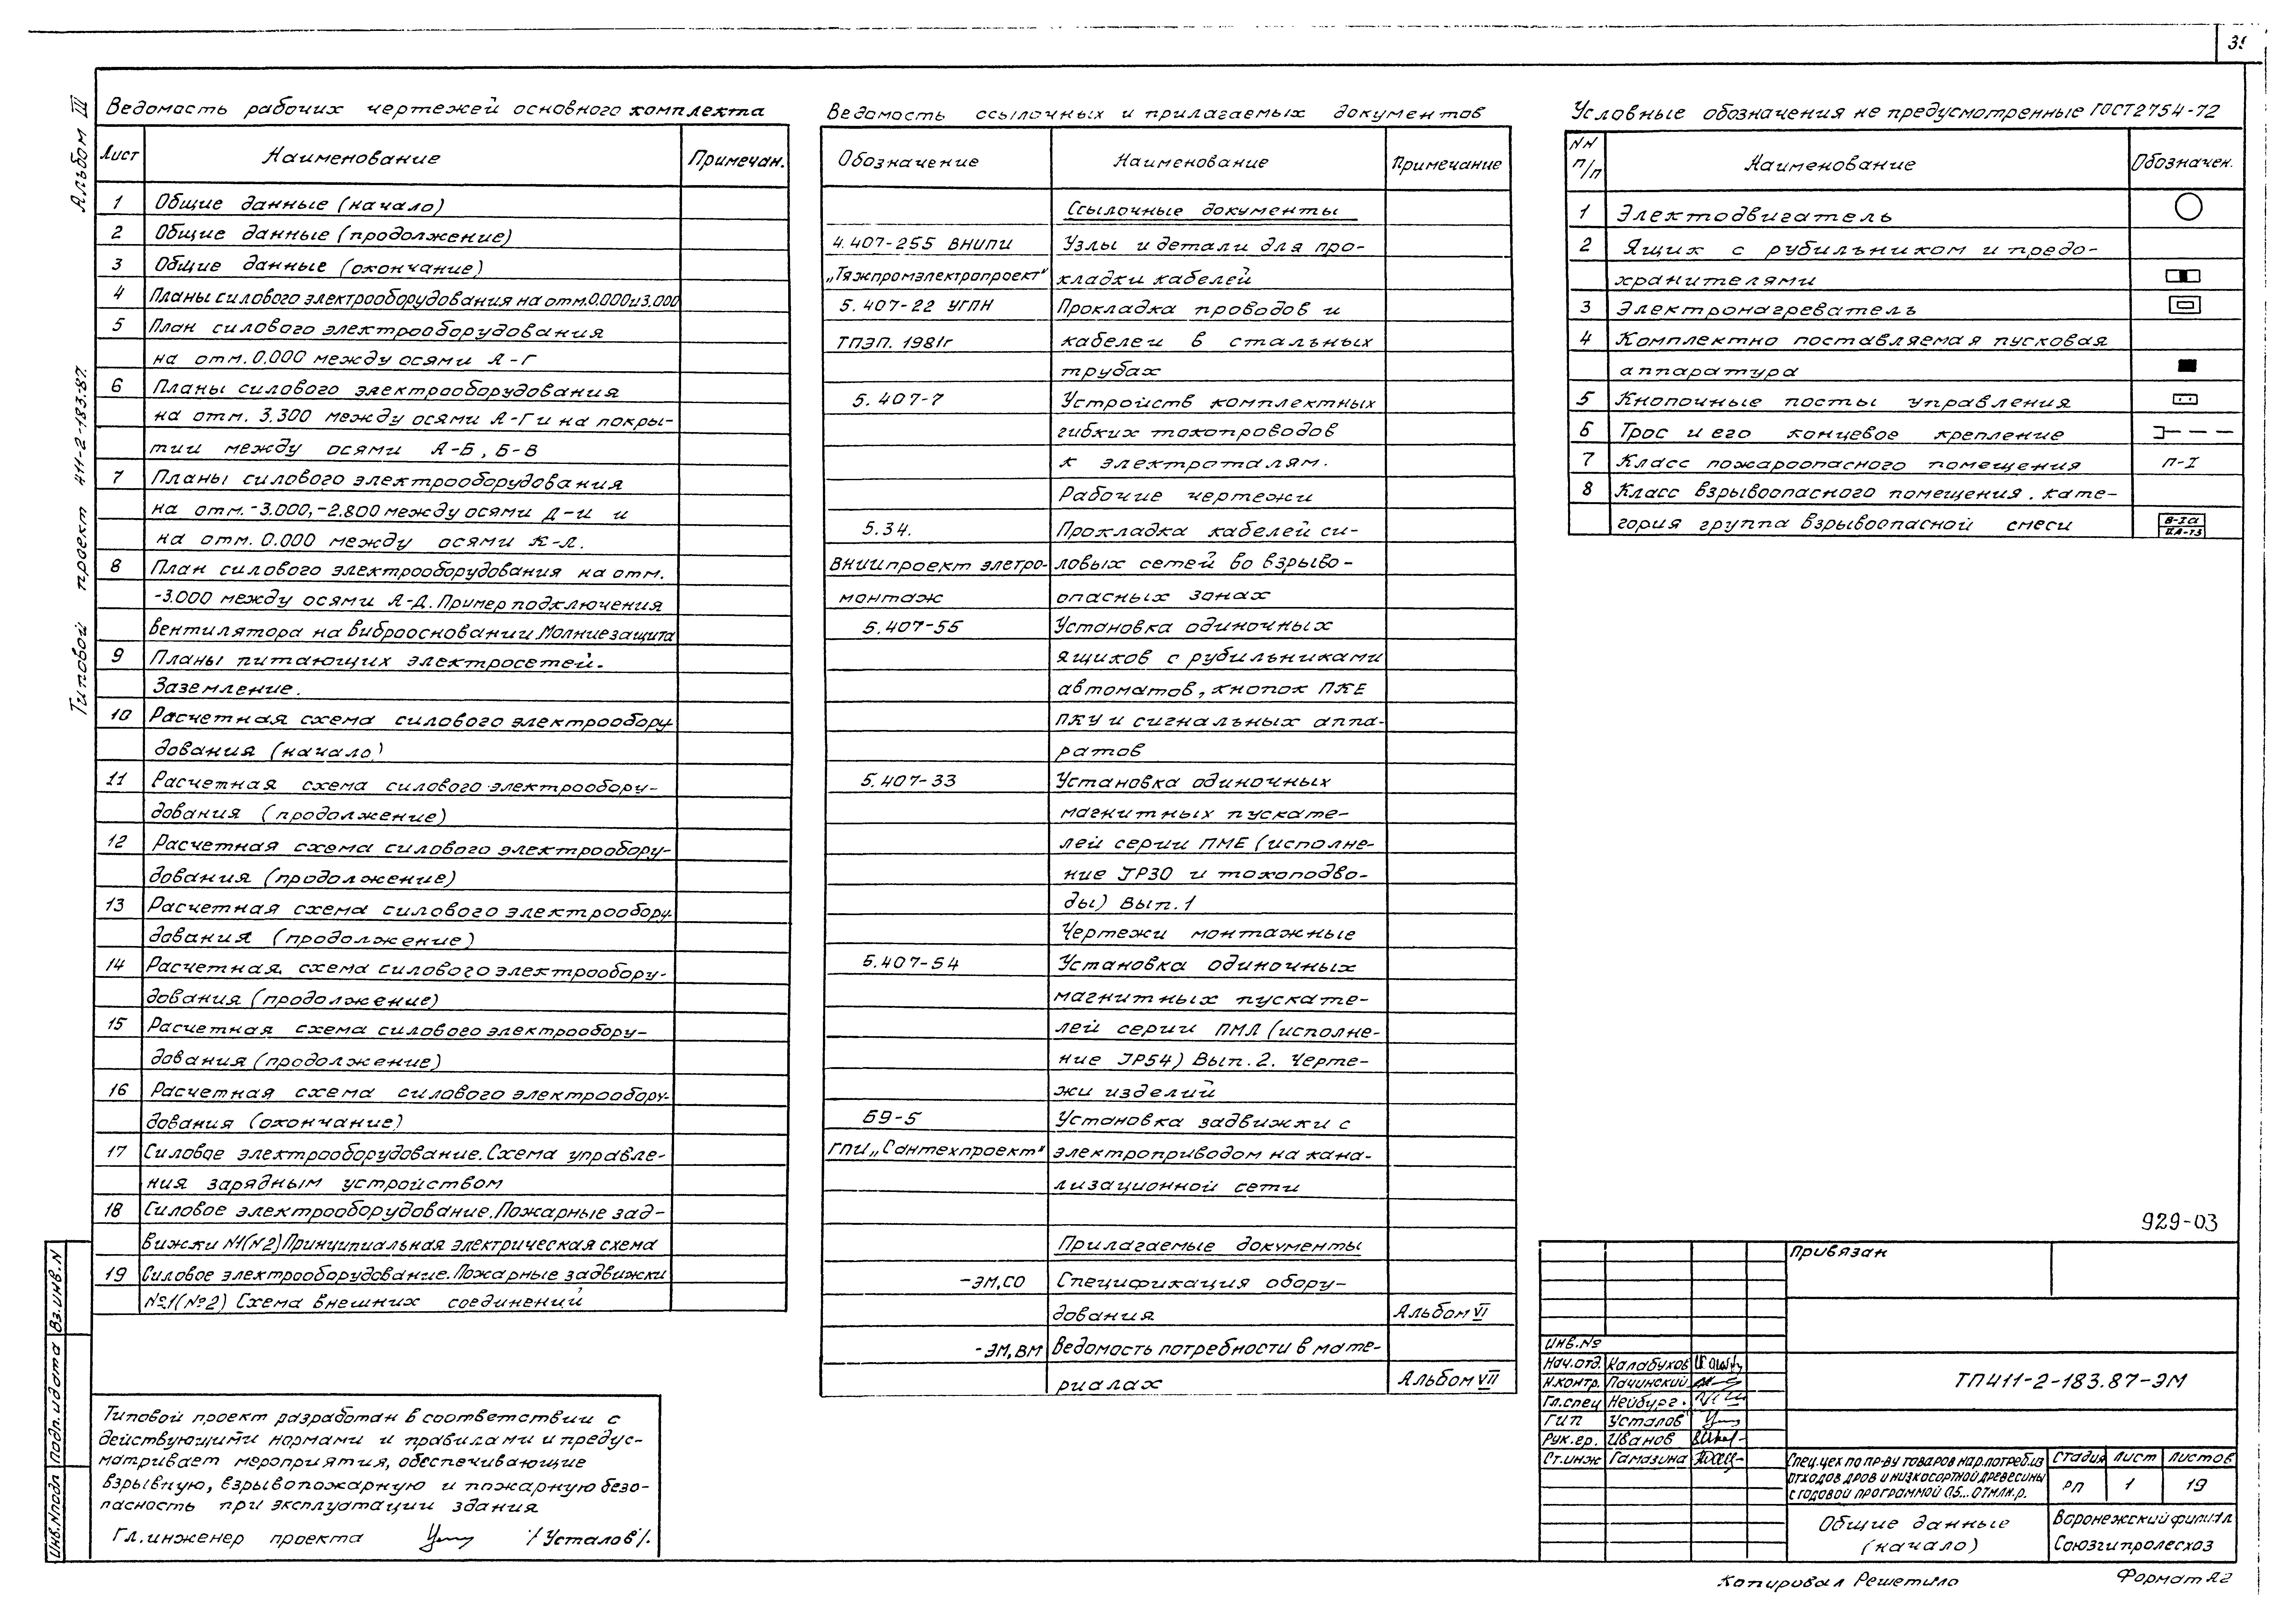 Альбом III
Типовой проект 411-2-183.87.
Ведомость рабочих чертежей основного комплекта
Лист Наименование Примечан.
1 Общие данные (начало)
2 Общие данные (продолжение)
3 Общие данные (окончание)
4 Планы силового электрооборудования на отм. 0.000 и 3.000
5 План силового электрооборудования
на отм. 0.000 между осями А-Г
6 Планы силового электрооборудования
на отм. 3.300 между осями А-Г и на покры-
тии между осями А-Б, Б-В
7 Планы силового электрооборудования
на отм. -3.000, -2.800 между осями Д-И и
на отм. 0.000 между осями К-Л.
8 План силового электрооборудования на отм.
-3.000 между осями А-Д. Пример подключения
вентилятора на виброосновании. Молниезащита
9 Планы питающих электросетей.
Заземление.
10 Расчетная схема силового электрообору-
дования (начало)
11 Расчетная схема силового электрообору-
дования (продолжение)
12 Расчетная схема силового электрообору-
дования (продолжение)
13 Расчетная схема силового электрообору-
дования (продолжение)
14 Расчетная схема силового электрообору-
дования (продолжение)
15 Расчетная схема силового электрообору-
дования (продолжение)
16 Расчетная схема силового электрообору-
дования (окончание)
17 Силовое электрооборудование. Схема управле-
ния зарядным устройством
18 Силовое электрооборудование. Пожарные зад-
вижки №1(№2) Принципиальная электрическая схема
19 Силовое электрооборудование. Пожарные задвижки
№1(№2) Схема внешних соединений
Типовой проект разработан в соответствии с
действующими нормами и правилами и предус-
матривает мероприятия, обеспечивающие
взрывную, взрывопожарную и пожарную безо-
пасность при эксплуатации здания
Гл. инженер проекта /Усталов/.
Ведомость ссылочных и прилагаемых документов
Обозначение Наименование Примечание
Ссылочные документы
4.407-255 ВНИПИ Узлы и детали для про-
„Тяжпромэлектропроект" кладки кабелей
5.407-22 УГПН Прокладка проводов и
ТПЭП. 1981г кабелей в стальных
трубах
5.407-7 Устройств комплектных
гибких токопроводов
к электроталям.
Рабочие чертежи
5.34. Прокладка кабелей си-
ВНИИпроект элетро- ловых сетей во взрыво-
монтаж опасных зонах
5.407-55 Установка одиночных
ящиков с рубильниками
автоматов, кнопок ПКЕ
ПКУ и сигнальных аппа-
ратов
5.407-33 Установка одиночных
магнитных пускате-
лей серии ПМЕ (исполне-
ние JP30 и токоподво-
ды) Вып. 1
Чертежи монтажные
5.407-54 Установка одиночных
магнитных пускате-
лей серии ПМЛ (исполне-
ние JP54) Вып. 2. Черте-
жи изделий
Б9-5 Установка задвижки с
ГПИ „Сантехпроект" электроприводом на кана-
лизационной сети
Прилагаемые документы
-ЭМ,СО Спецификация обору-
дования Альбом VI
-ЭМ,ВМ Ведомость потребности в мате-
риалах Альбом VII
Условные обозначения не предусмотренные ГОСТ 2754-72
NN п/п Наименование Обозначен.
1 Электодвигатель
2 Ящик с рубильником и предо-
хранителями
3 Электронагреватель
4 Комплектно поставляемая пусковая
аппаратура
5 Кнопочные посты управления
6 Трос и его концевое крепление
7 Класс пожароопасного помещения П-I
8 Класс взрывоопасного помещения. кате-
гория группа взрывоопасной смеси В-Iа
IIА-Т3
929-03
Привязан
Инв.№
Нач.отд. Калабухов
Н.контр. Пачинский
Гл.спец Нейбург.
ГИП Усталов
Рук.гр. Иванов
Ст.инж Гамазина
ТП411-2-183.87-ЭМ
Спец.цех по пр-ву товаров нар.потреб.из
отходов дров и низкосортной древесины
с годовой программой 0.5...0.7млн.р.
Стадия Лист Листов
РП 1 19
Общие данные
(начало)
Воронежский филиал
Союзгипролесхоз
Копировал Решетило
Формат А2
Инв.Nподл Подп. и дата Вз.инв.N